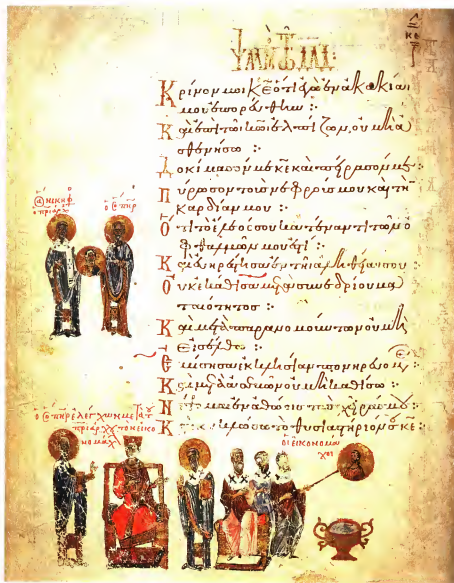 ΨΑΛΜ ΤΩ ΔΑΔ
Κρίνόν μοι κ̅ε̅ ὅτι ἐγὼ ἐν ἀκακίαι
μου ἐπορεύθην :
Καὶ ἐπὶ τῶι κ̅ω̅ι ἐλπίζων, οὐ μὴ ἀ
σθενήσω :
Δοκίμασόν με κ̅ε̅ καὶ πείρασόν με :
Πύρωσον τοὺς νεφρούς μου καὶ τὴν
καρδίαν μου :
Ὅτι τὸ ἔλεός σου κατέναντι τῶν ὀ
φθαλμῶν μου ἐστί :
Καὶ εὐηρέστησα ἐν τῆι ἀληθείαι σου
Οὐκ ἐκάθισα μετὰ συνεδρίου μα
ταιότητος :
Καὶ μετὰ παρανομούντων οὐ μὴ
εἰσέλθω :
Ἐμίσησα ἐκκλησίαν πονηρευομέ
Καὶ μετὰ ἀσεβῶν οὐ μὴ καθίσω :
Νίψομαι ἐν ἀθώοις τὰς χεῖράς μου
Καὶ κυκλώσω τὸ θυσιαστήριόν σου κε
ὁ ἅ νικηφ
ὁ πριάρχ
ὁ σ πηρ
ὁ σ πηρ ἐλέγχων μετὰ τ
πριάρχ τὸν εἰκο
νομάχ
οἱ εἰκονομά
χοι